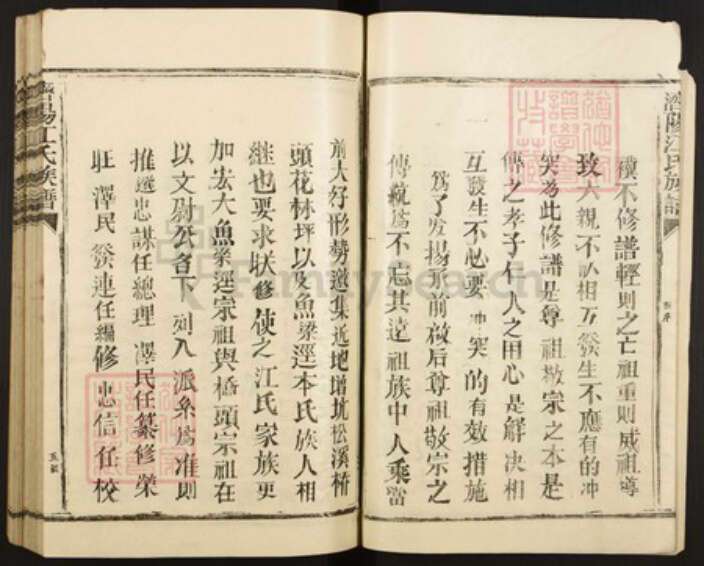 濟陽江氏族譜
續不修譜輕則之亡祖重則威祖導
致六親不認相互發生不應有的冲
突為此修譜是尊祖敬宗之本是
傳之孝子仁人之用心是解决相
互發生不必要冲突的有效措施
為了发揚承前啟后尊祖敬宗之
傳統為不忘其遠祖族中人乘當
前大好形勢邀集近地增坑松溪橋
頭花林坪以及魚梁逕本氏族人相
継也要求联修使之江氏家族更
加宏大魚梁逕宗祖與橋頭宗祖在
以文尉公名下列入派系為准則
推選忠謀任總理澤民任纂修荣
旺澤民發連任編修忠信任校
濟陽江氏族譜
FamilySearch